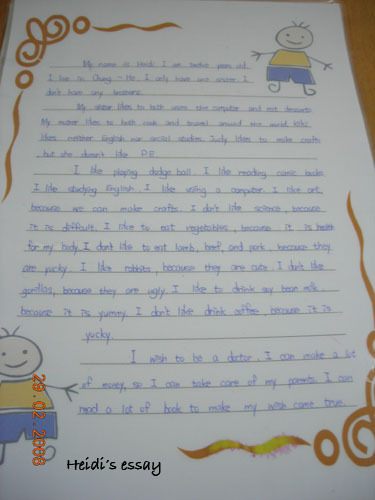 My name is Heidi. I am twelve years old.
I live in Chung-He. I only have one sister. I
don't have any brothers.
My sister likes to both use the computer and eat desserts.
My mother likes to both cook and travel around the world. Kiki
likes neither English nor social studies. Judy likes to make crafts
but she doesn't like P.E
I like playing dodge ball. I like reading comic books.
I like studying English. I like using a computer. I like art,
because we can make crafts. I don't like science, because
it is difficult. I like to eat vegetables, because it is health
for my body. I don't like to eat lamb, beef, and pork, because they
are yucky. I like rabbits, because they are cute. I don't like
gorillas, because they are ugly. I like to drink soy bean milk,
because it is yummy. I don't like drink coffee because it is
yucky.
I wish to be a doctor. I can make a lot
of money, so I can take care of my parents. I can
read a lot of book to make my wish came true.
29.02.2008
Heidi's essay